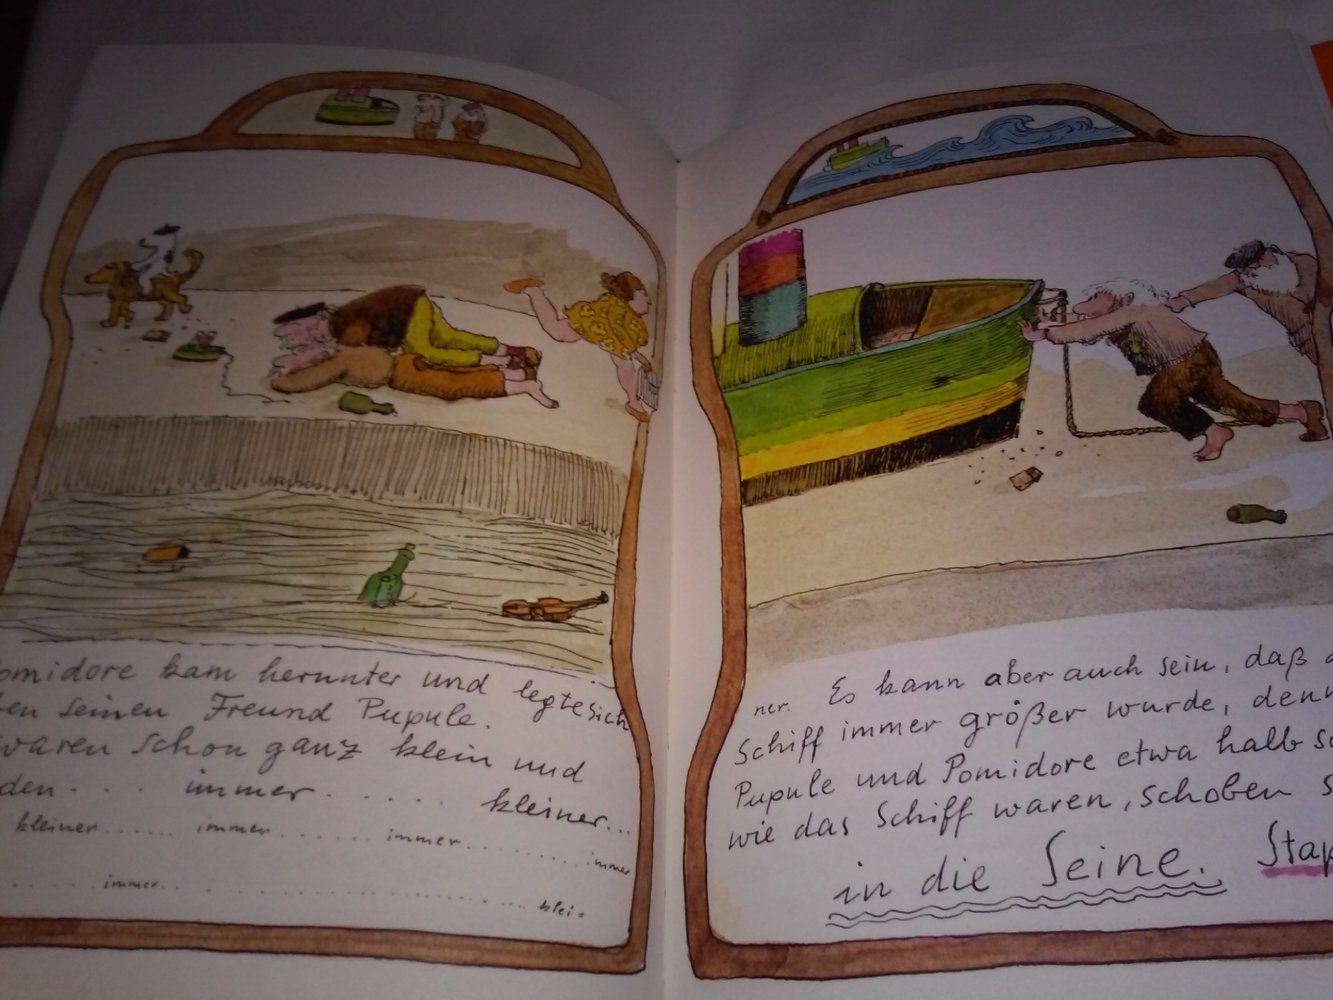 omidore kam herunter und legte sich
en seinen Freund Pupule.
waren schon ganz klein und
den . . . immer . . . . . kleiner...
kleiner...... immer....... immer.......... immer
. . . . . immer. . . . . . . . . . . . . . . . . klei=
ner. Es kann aber auch sein, daß
Schiff immer größer wurde, denn
Pupule und Pomidore etwa halb so
wie das Schiff waren, schoben s
in die Seine. Stap